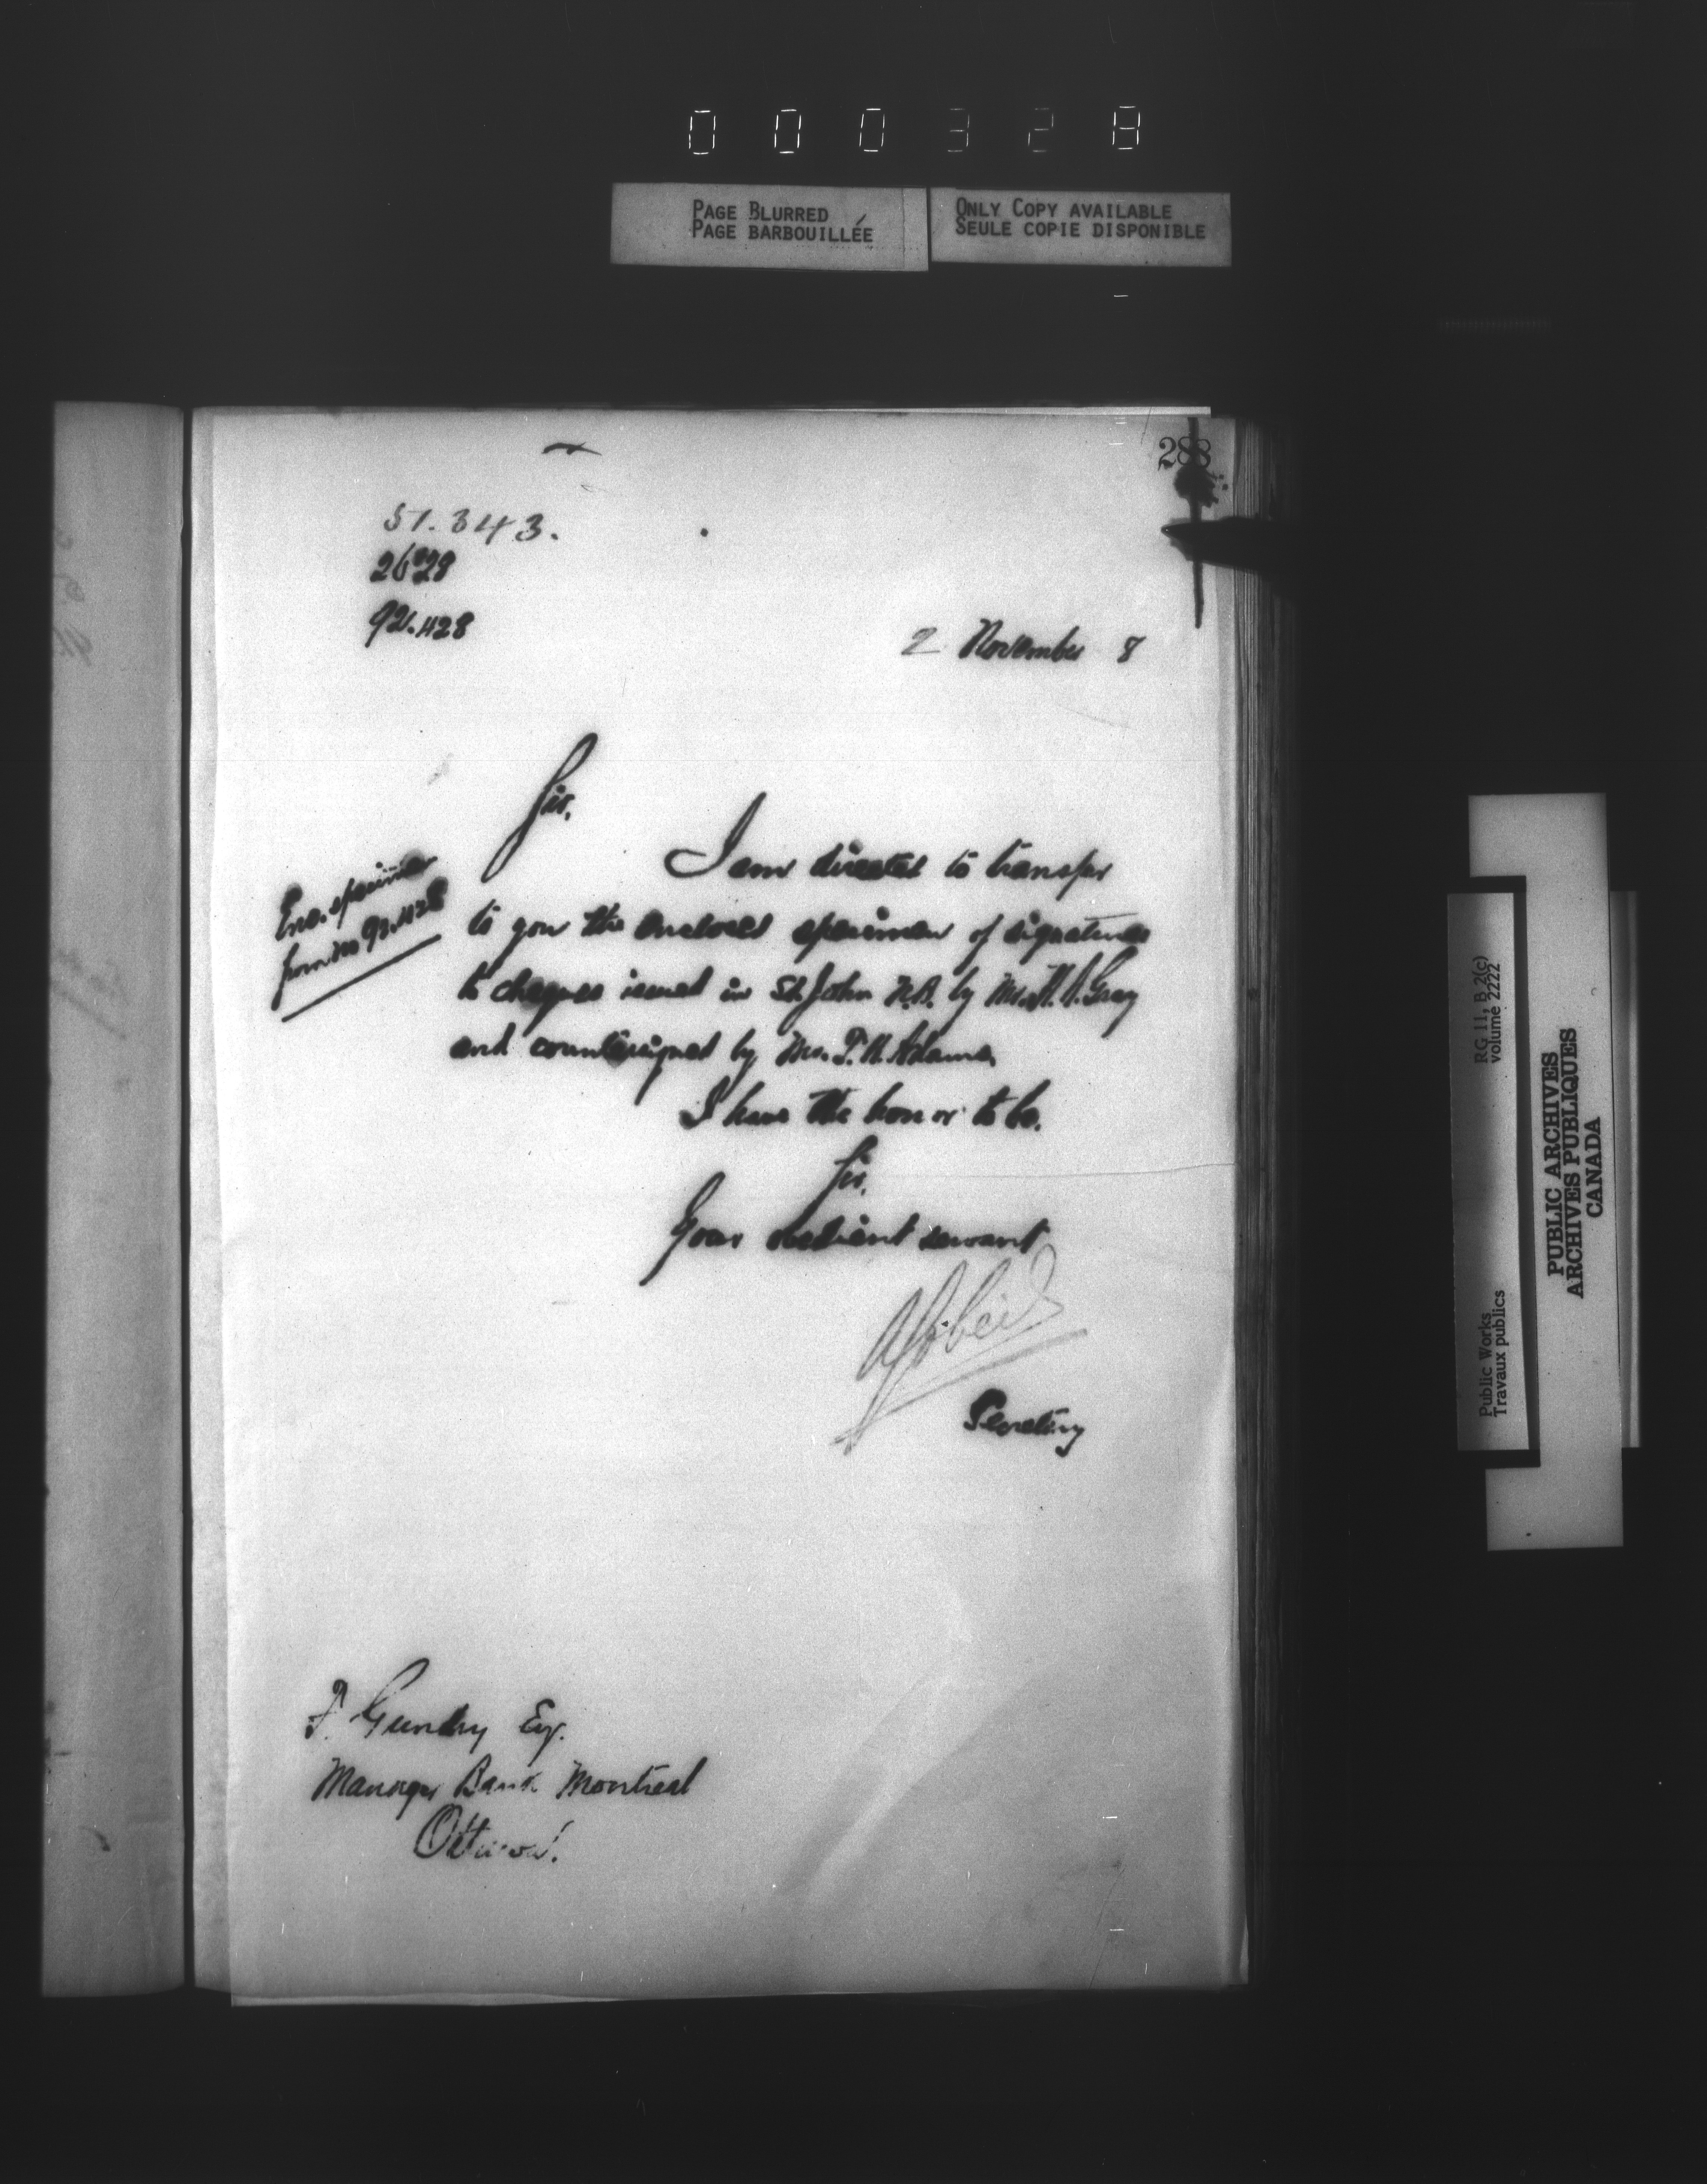 000328
PAGE BLURRED
PAGE BARBOUILLÉE
ONLY COPY AVAILABLE
SEULE COPIE DISPONIBLE
288
51.343.
2 November 8
Sir,
I am directed to transfer
to you the enclosed specimen of signatures
to cheques issued in St. John N.B. by Mr. Gray
and countersigned by Mr. T. H. Adams.
Enc. specimen
from no 92.428
I have the honor to be,
Sir,
Your obedient servant
Secretary
F. Gundry Esq.
Manager Bank Montreal
Ottawa.
RG 11, B 2(c)
volume 2222
Public Works
Travaux publics
PUBLIC ARCHIVES
ARCHIVES PUBLIQUES
CANADA